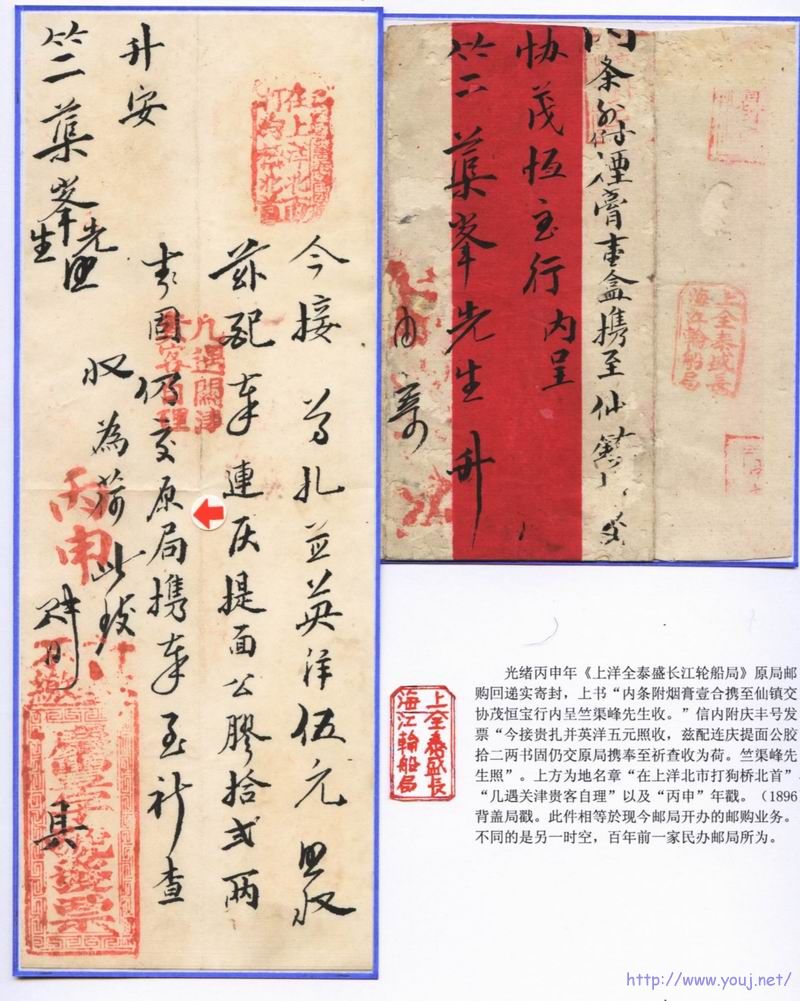 今接 尊札並英洋伍元 照收
茲配奉 連慶提面公膠拾弍兩
書固仍交原局携奉至祈查
收為荷 此致
竺蕖峯先生照
升安
丙申
具
凡遇關津
貴客自理
在上洋北市
打狗橋北首
發票
内条附煙膏壹盒携至仙鎮 交
协茂恒宝行内呈
竺蕖峯先生升
上全泰盛長
海江輪船局
上全泰盛長
海江輪船局
光绪丙申年《上洋全泰盛长江轮船局》原局邮
购回递实寄封，上书“内条附烟膏壹合携至仙镇交
协茂恒宝行内呈竺渠峰先生收。”信内附庆丰号发
票“今接贵扎并英洋五元照收，兹配连庆提面公胶
拾二两书固仍交原局携奉至祈查收为荷。竺渠峰先
生照”。上方为地名章“在上洋北市打狗桥北首”、
“几遇关津贵客自理”以及“丙申”年戳。（1896
背盖局戳。此件相等於现今邮局开办的邮购业务。
不同的是另一时空，百年前一家民办邮局所为。
http://www.youj.net/